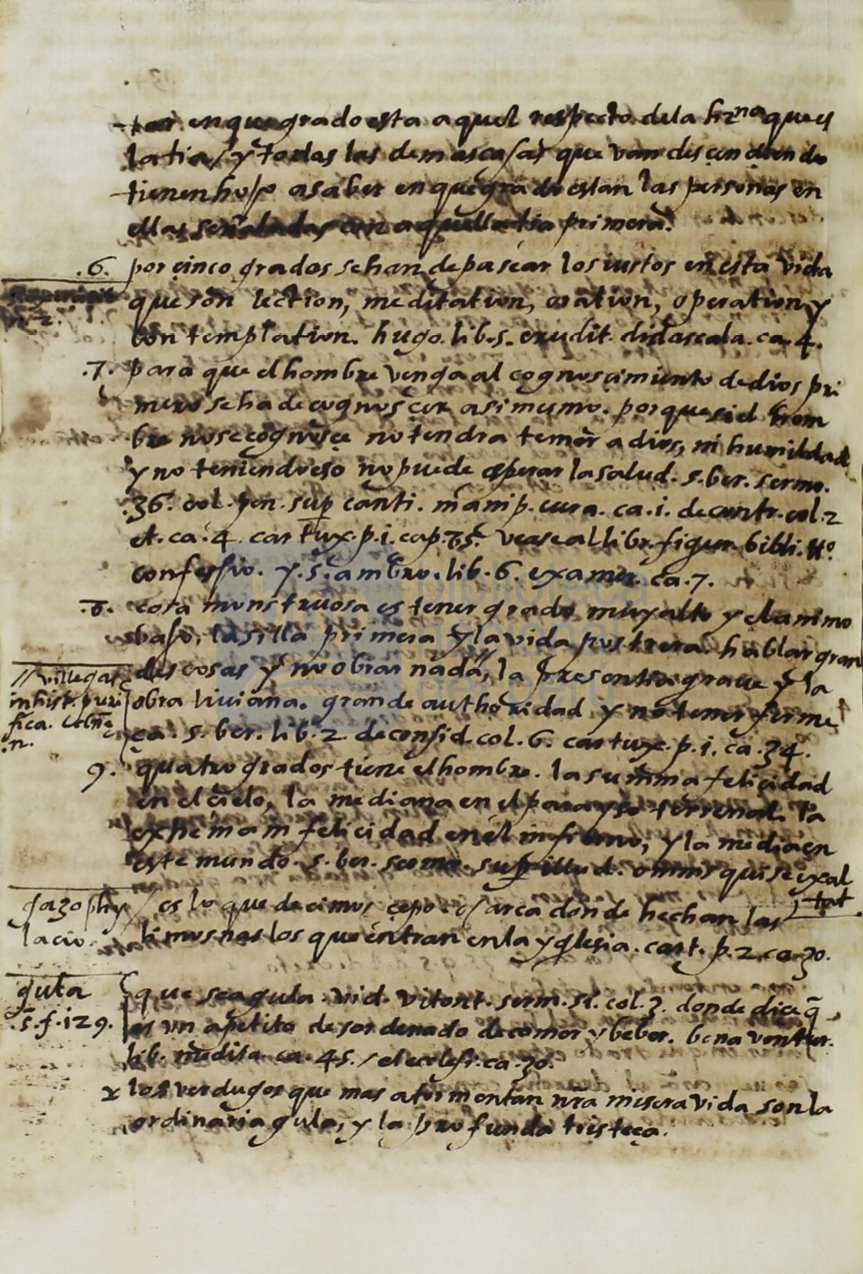 en que grado esta aquel respecto dela hrna que es
la tia / y todas las demas casas que van desçendiendo
tienen hasse a saber en que grado estan las personas en
ellas señaladas con aquella tia primera.
.6. por çinco grados se han de pasear los iustos en esta vida
que son lection, meditation, oration, operation y
contemplation. hugo. lib. 5. erudit. didascala. ca. 4.
.7. para que el hombre venga al cognosçimiento de dios pri
mero se ha de cognosçer asi mesmo. porque si el hom
bre no se cognosçe no tendra temor a dios, ni humildad
y no teniendo eso no puede esperar la salud. s. ber. sermo.
36. col. pen. sup canti. manip. cura. ca. i. de contr. col. 2
et. ca. 4. cartux. p. i. cap. 75. vease al libr. figur. bibli. tto
confessio. y. s. ambro. lib. 6. examer. ca. 7.
.8. cosa monstruosa es tener grado muy alto y el animo
baxo, la silla primera y la vida postrera. hablar gran
des cosas y no obrar nada, la presontia graue y la
obra liuiana. grande authoridad y no tener firme
ça. s. ber. lib. 2. de consid. col. 6. cartux. p. i. ca. 34.
// Villegas
in hist. puri
fica.
9. quatro grados tiene el hombre. la summa felicidad
en el çielo, la mediana en el parayso terrenal. la
extrema infelicidad en el infierno, y la media en
este mundo. s. ber. sermo. sup illud. omnis qui se exal
tat
gazophy
lacio.
es lo que decimos çepo. o arca donde hechan las
limosnas los que entran en la yglesia. cart. p. 2. ca. 30.
gula
.s. f. 129.
que sea gula. vid. vitont. serm. st. col. 3. donde dice q̄
es un apetito desordenado de comer y beber. bonaventur.
lib. medita. ca. 45. / et eclesi. ca. 30.
2 los verdugos que mas atormentan nra misera vida son la
ordinaria gula, y la profunda tristeça.